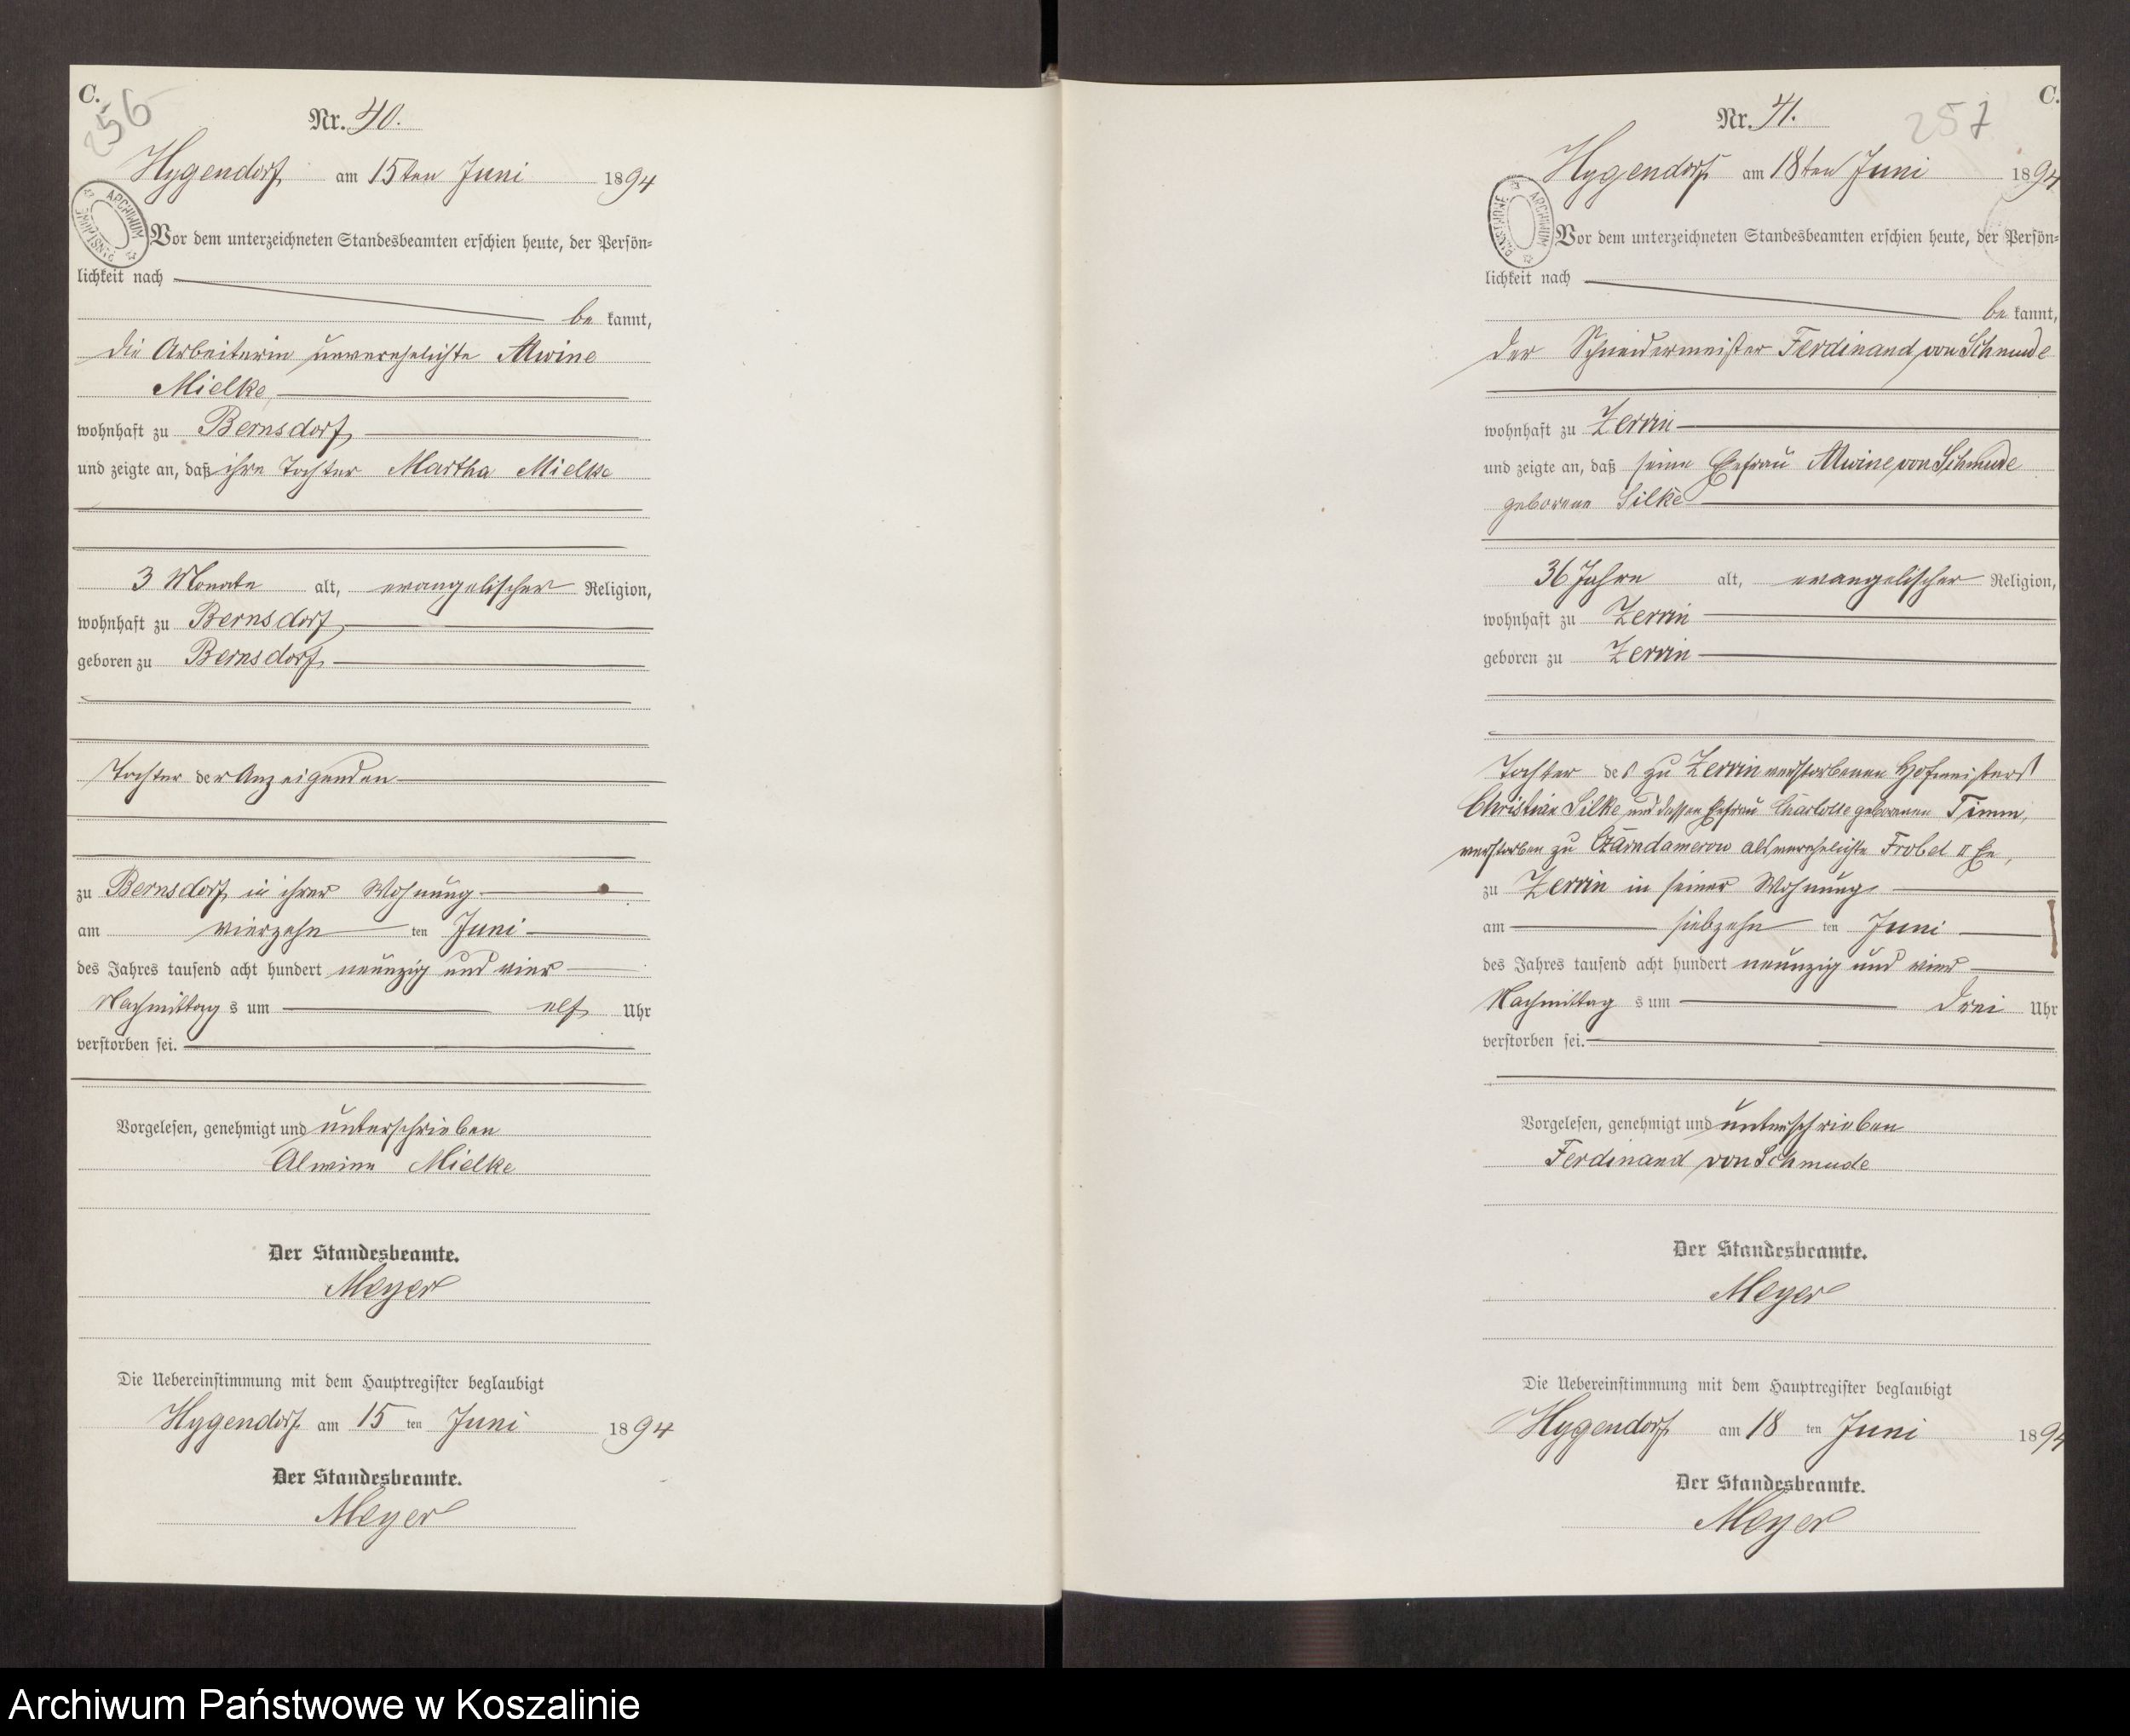 C.
256
Nr. 40.
Hygendorf, am 15ten Juni 1894
ARCHIWUM PAŃSTWOWE
Vor dem unterzeichneten Standesbeamten erschien heute, der Persön=
lichkeit nach
be kannt,
die Arbeiterin unverehelichte Alwine
Mielke,
wohnhaft zu Bernsdorf,
und zeigte an, daß ihre Tochter Martha Mielke
3 Monate alt, evangelischer Religion,
wohnhaft zu Bernsdorf,
geboren zu Bernsdorf,
Tochter der Anzeigenden
zu Bernsdorf, in ihrer Wohnung
am vierzehn ten Juni
des Jahres tausend acht hundert neunzig und vier
Nachmittag s um elf Uhr
verstorben sei.
Vorgelesen, genehmigt und unterschrieben
Alwine Mielke
Der Standesbeamte.
Meyer
Die Uebereinstimmung mit dem Hauptregister beglaubigt
Hygendorf, am 15 ten Juni 1894
Der Standesbeamte.
Meyer
C.
257
Nr. 41.
Hygendorf, am 18ten Juni 1894
ARCHIWUM PAŃSTWOWE
Vor dem unterzeichneten Standesbeamten erschien heute, der Persön=
lichkeit nach
be kannt,
der Schneidermeister Ferdinand von Schmude
wohnhaft zu Zerrin
und zeigte an, daß seine Ehefrau Alwine von Schmude
geborene Silke
36 Jahre alt, evangelischer Religion,
wohnhaft zu Zerrin
geboren zu Zerrin
Tochter des zu Zerrin verstorbenen Hofmeisters
Christian Silke und dessen Ehefrau Charlotte geborenen Timm,
verstorben zu Czarndamerow als verehelichte Frobel II Ehe,
zu Zerrin in seiner Wohnung
am siebzehn ten Juni
des Jahres tausend acht hundert neunzig und vier
Nachmittag s um drei Uhr
verstorben sei.
Vorgelesen, genehmigt und unterschrieben
Ferdinand von Schmude
Der Standesbeamte.
Meyer
Die Uebereinstimmung mit dem Hauptregister beglaubigt
Hygendorf, am 18 ten Juni 1894
Der Standesbeamte.
Meyer
Archiwum Państwowe w Koszalinie